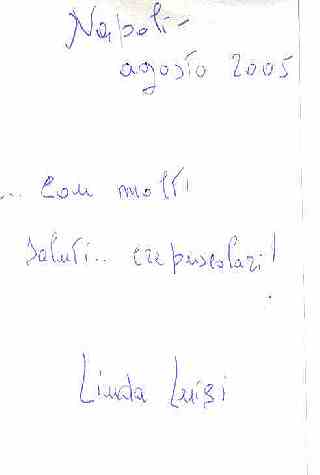 Napoli -
agosto 2005
... Con molti
saluti.. crepuscolari!
Linda Luisi